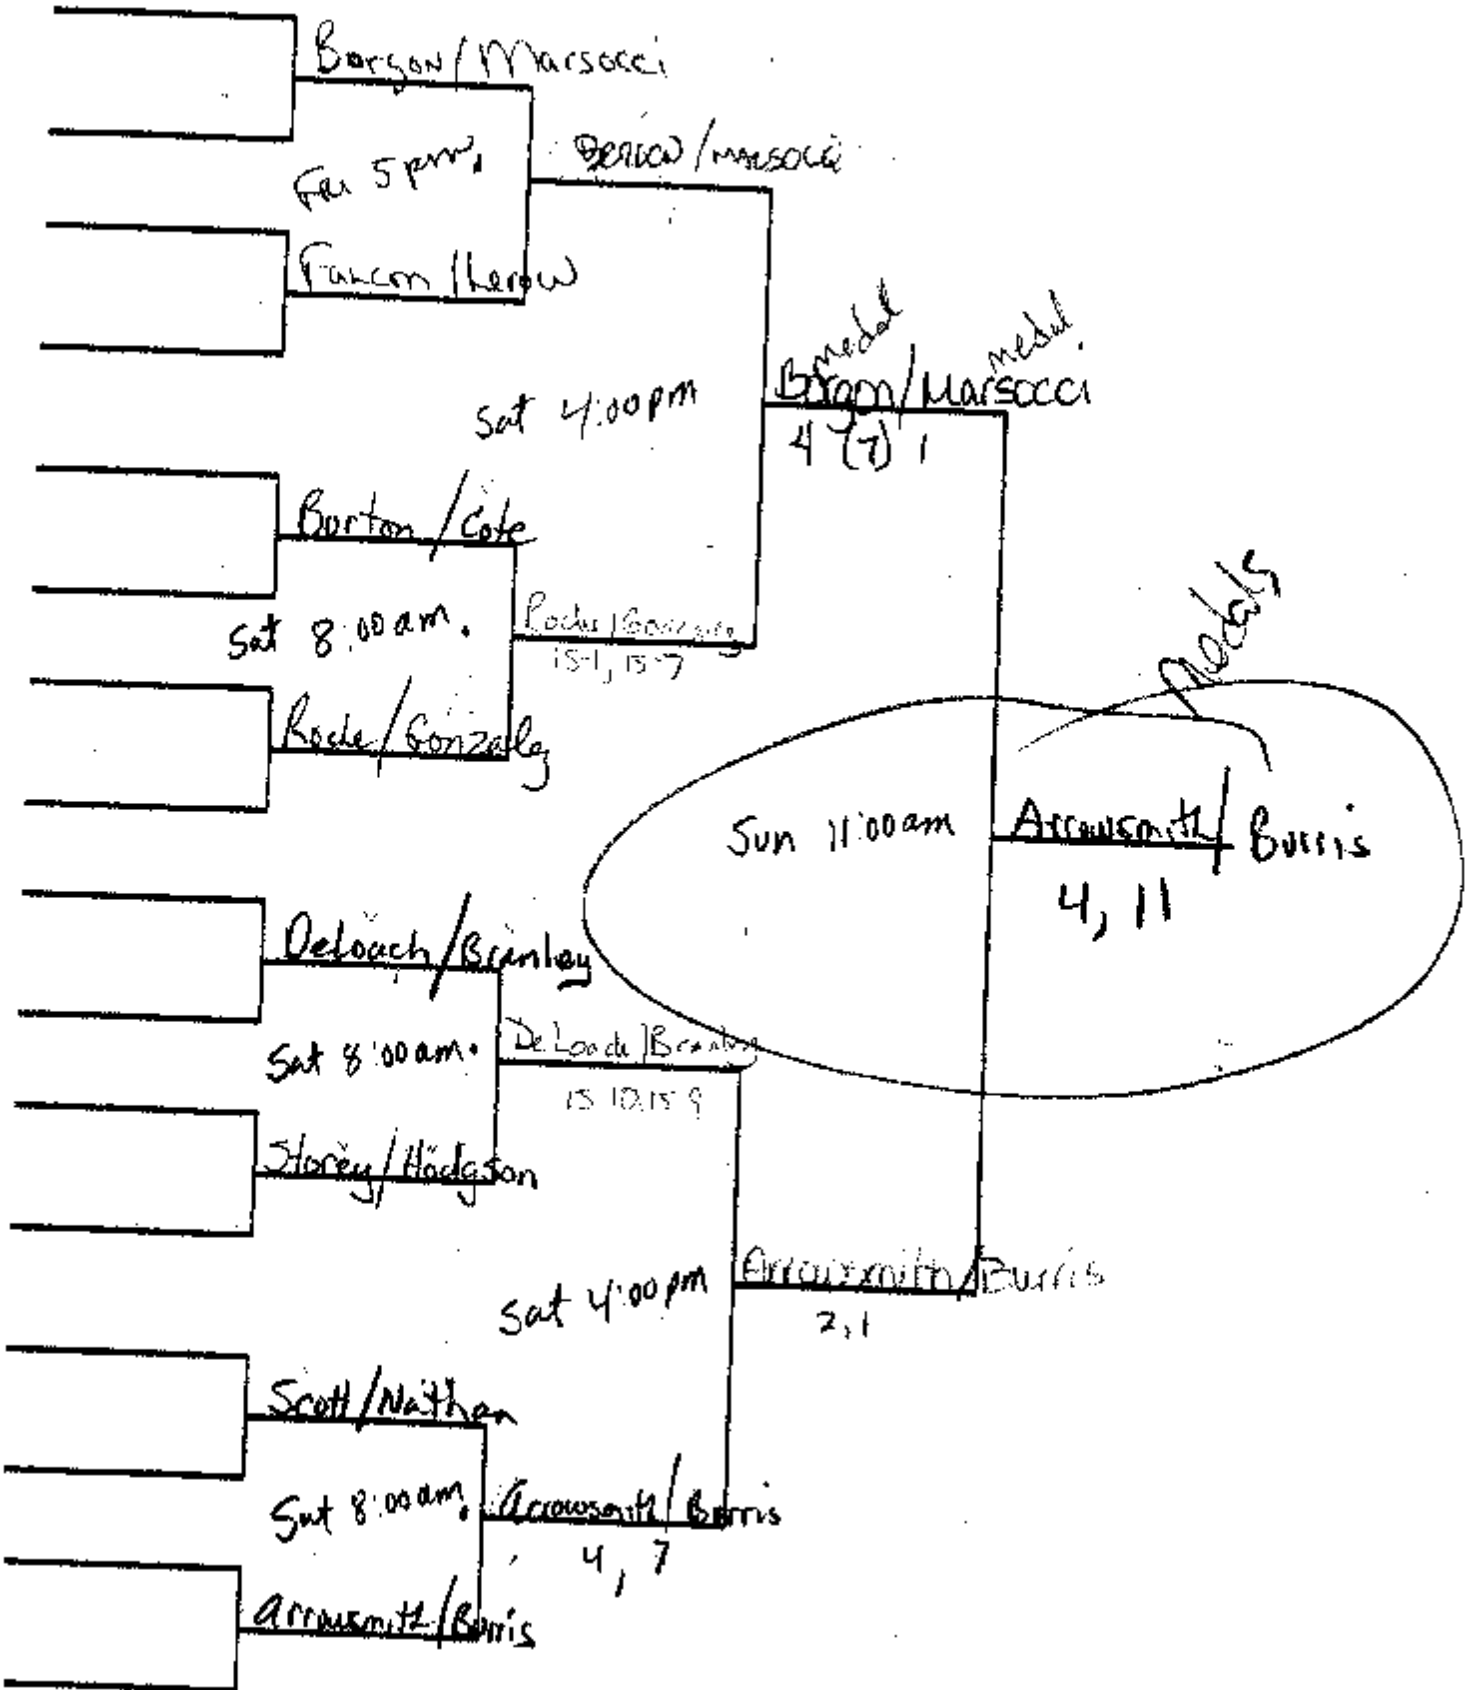 Borgon / Marsocci
Fri 5 pm.
/ Marsocci
/ Lerow
medal medal
Borgon / Marsocci
4 (7) 1
Sat 4:00 pm
Burton / Cote
Sat 8:00 am.
Roche / Gonzalez
15-1, 15-7
Roche / Gonzalez
Medals
Sun 11:00 am
Arrowsmith / Burris
4, 11
DeLoach / Branley
Sat 8:00 am.
DeLoach / Branley
15 10, 15 9
Storey / Hodgson
Sat 4:00 pm
Arrowsmith / Burris
2, 1
Scott / Nathan
Sat 8:00 am.
Arrowsmith / Burris
4, 7
Arrowsmith / Burris